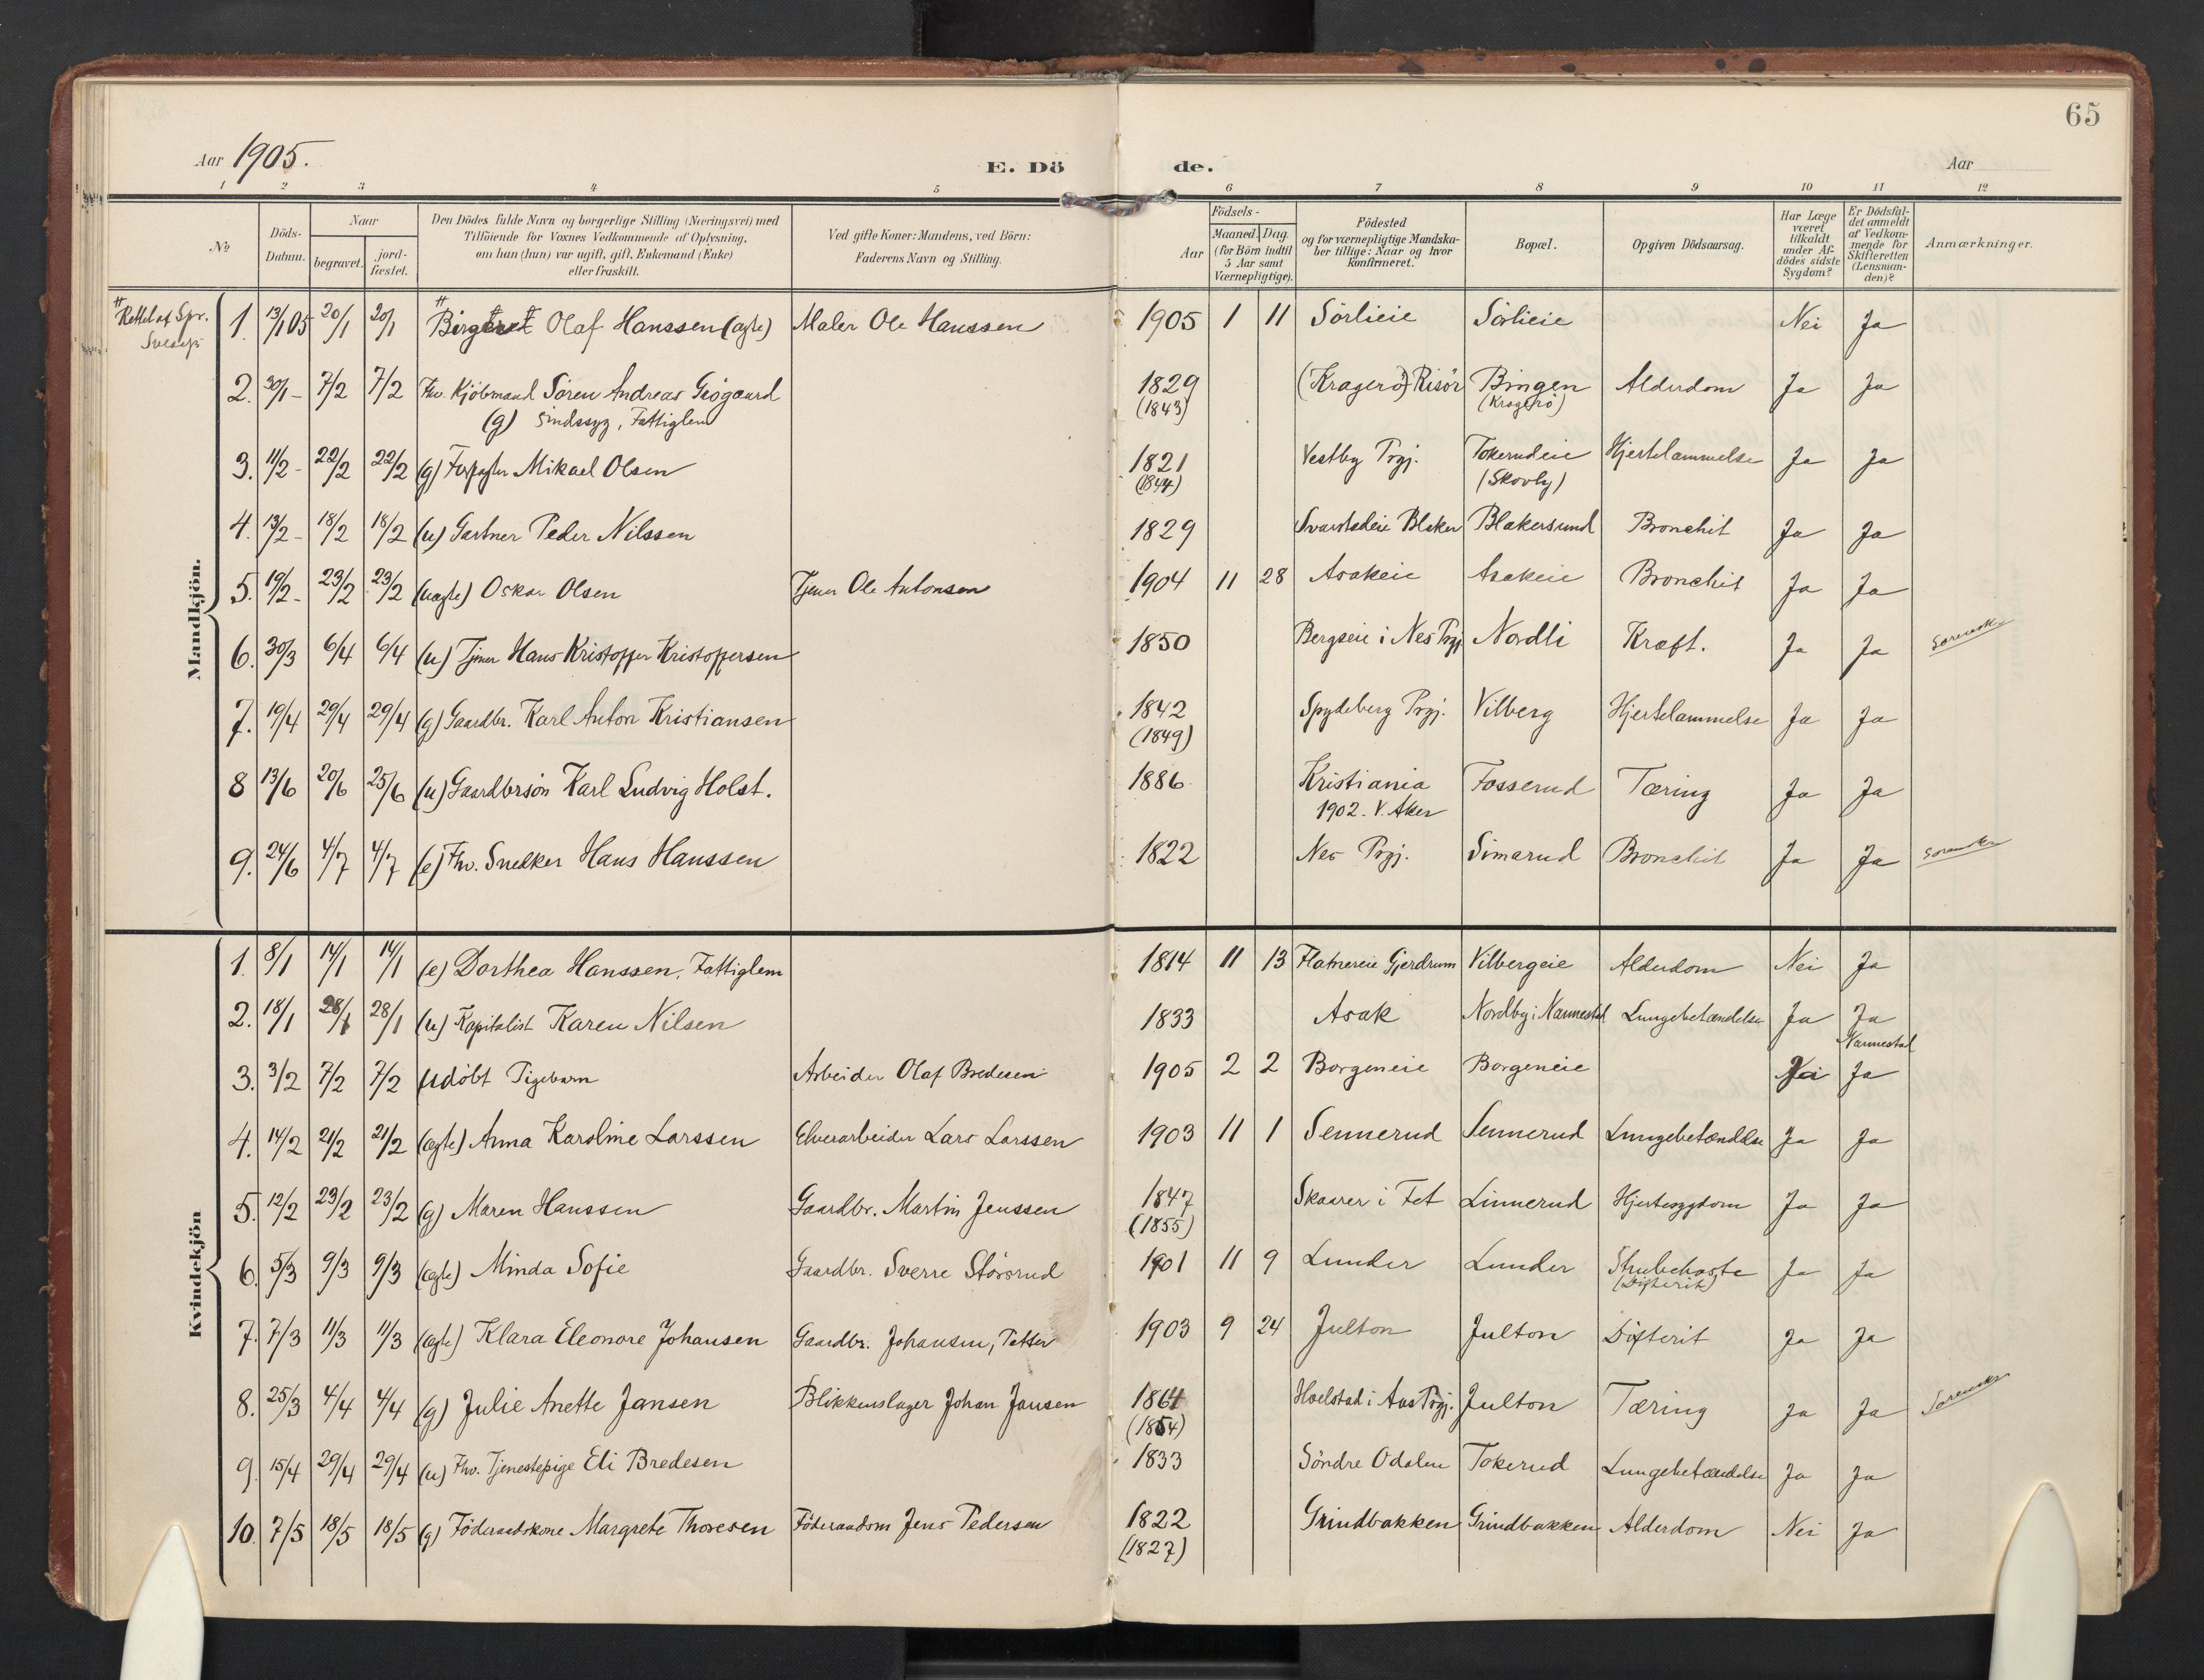 65
Aar 1905. E. Dö de. Aar
1 2 3 4 5 6 7 8 9 10 11 12
No Döds-Datum. Naar begravet. jord-fæstet. Den Dödes fulde Navn og borgerlige Stilling (Næringsvei) med Tilföiende for Voxnes Vedkommende af Oplysning, om han (hun) var ugift, gift, Enkemand (Enke) eller fraskilt. Ved gifte Koner: Mandens, ved Börn: Faderens Navn og Stilling. Födsels- Aar Maaned. Dag. (for Börn indtil 5 Aar samt Værnepligtige). Födested og for værnepligtige Mandskaber tillige: Naar og hvor konfirmeret. Bopæl. Opgiven Dödsaarsag. Har Læge været tilkaldt under Afdödes sidste Sygdom? Er Dödsfaldet anmeldt af Vedkommende for Skifteretten (Lensmanden)? Anmærkninger.
Rettet af Spr.
Mandkjön.
1. 13/1 05 20/1 20/1 Olaf Hanssen (ægte) Maler Ole Hanssen 1905 1 11 Sörlieie Sörlieie Nei Ja
2. 30/1 - 7/2 7/2 Fhv. Kjöbmand Sören Andreas 1829 (Kragerö?) Risör Bingen Alderdom Ja Ja
(g) Sindssyg, Fattiglem (1843) (Kragerö)
3. 11/2 - 22/2 22/2 (g) Forpagter Mikael Olsen 1821 Vestby Prgj. Tokerudeie Hjertelammelse Ja Ja
(1844) (Skovly)
4. 13/2 - 18/2 18/2 (u) Gartner Peder Nilssen 1829 Svarstadeie Blaker Blakersund Bronchit Ja Ja
5. 19/2 - 23/2 23/2 (uægte) Oskar Olsen Tjener Ole Antonsen 1904 11 28 Asakeie Asakeie Bronchit Ja Ja
6. 30/3 6/4 6/4 (u) Tjener Hans Kristoffer Kristoffersen 1850 Bergseie i Nes Prgj Nordli Kræft. Ja Ja
7. 19/4 29/4 29/4 (g) Gaardbr. Karl Anton Kristiansen 1842 Spydeberg Prgj. Vilberg Hjertelammelse Ja Ja
(1849)
8 13/6 20/6 25/6 (u) Gaardbrsön Karl Ludvig Holst. 1886 Kristiania Fosserud Tæring Ja Ja
1902. V. Aker
9. 24/6 4/7 4/7 (e) Fhv. Snedker Hans Hanssen 1822 Nes Prgj. Simarud Bronchit Ja Ja
Kvindekjön
1. 8/1 14/1 14/1 (e) Dorthea Hanssen, Fattiglem 1814 11 13 Flatnereie Gjerdrum Vilbergeie Alderdom Nei Ja
2. 18/1 28/1 28/1 (u) Kapitalist Karen Nilsen 1833 Asak Nordby i Nannestad Lungebetændelse Ja Ja
Nannestad
3. 3/2 7/2 7/2 udöbt Pigebarn Arbeider Olaf Bredesen 1905 2 2 Borgeneie Borgeneie Nei Ja
4. 14/2 21/2 21/2 (ægte) Anna Karoline Larssen Elverarbeider Lars Larssen 1903 11 1 Sennerud Sennerud Lungebetændelse Ja Ja
5. 12/2 23/2 23/2 (g) Maren Hanssen Gaardbr. Martin Jenssen 1847 Skaarer i Fet Linnerud Hjertesygdom Ja Ja
(1855)
6. 5/3 9/3 9/3 (ægte) Minda Sofie Gaardbr. Sverre Störsrud 1901 11 9 Lunder Lunder Strubehoste Ja Ja
(Difterit)
7. 7/3 11/3 11/3 (ægte) Klara Eleonore Johansen Gaardbr. Johansen, Petter 1903 9 24 Julton Julton Difterit Ja Ja
8. 25/3 4/4 4/4 (g) Julie Anette Jansen Blikkenslager Johan Jansen 1861 Hoelstad i Aas Prgj. Julton Tæring Ja Ja
(1854)
9. 15/4 29/4 29/4 (u) Fhv. Tjenestepige Eli Bredesen 1833 Söndre Odalen Tokerud Lungebetændelse Ja Ja
10. 7/5 18/5 18/5 (g) Föderaadskone Margrete Thoresen Föderaadsm Jens Pedersen 1822 Grindbakken Grindbakken Alderdom Nei Ja
(1827)